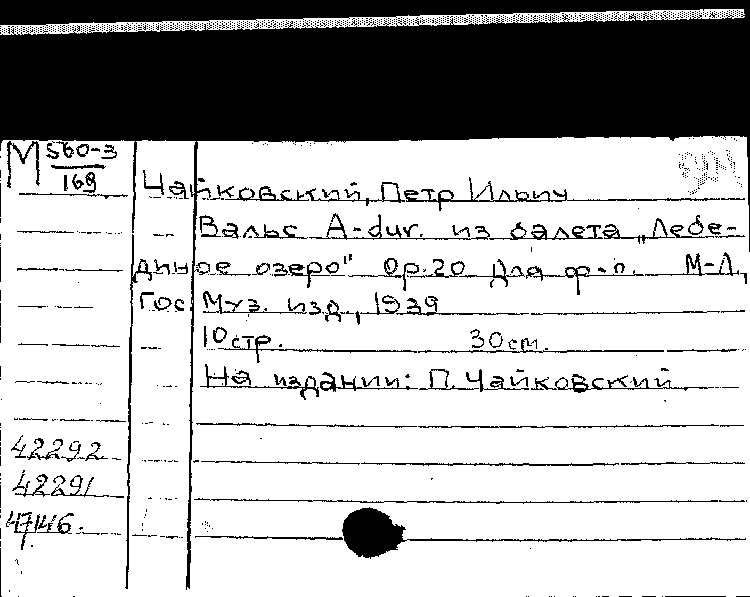 М 560-3
169
Чайковский, Петр Ильич
Вальс A-dur. из балета „Лебе-
диное озеро" Op.20 Для ф-п. М-Л.,
Гос. Муз. изд., 1939
10 стр. 30 см.
На издании: П. Чайковский.
42292
42291
47146.